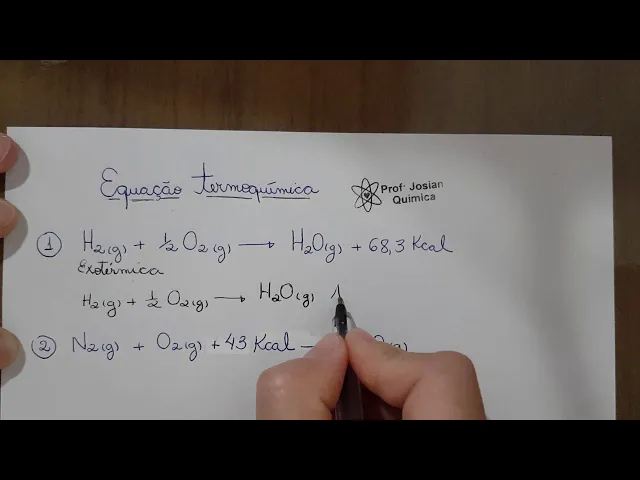 Equação termoquímica
Profª Josian
Química
1 H₂(g) + ½ O₂(g) → H₂O(g) + 68,3 Kcal
Exotérmica
H₂(g) + ½ O₂(g) → H₂O(g)
2 N₂(g) + O₂(g) + 43 Kcal